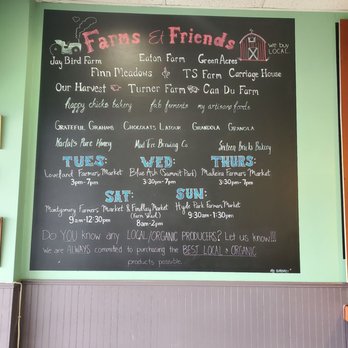 Farms & Friends
we buy
LOCAL
Jay Bird Farm Eaton Farm Green Acres
Finn Meadows & TS Farm Carriage House
Our Harvest Turner Farm Can Du Farm
happy chicks bakery fab ferments my artisano foods
GRATEFUL GRAHAMS CHOCOLATS LATOUR GRANDOLA GRANOLA
Karlata's Pure Honey Mad Tree Brewing Co. Sixteen Bricks Bakery
TUES: WED: THURS:
Loveland Farmers Market Blue Ash (Summit Park) Madeira Farmers Market
3pm-7pm 3:30pm-7pm 3:30pm-7pm
SAT: SUN:
Montgomery Farmers Market & Findlay Market Hyde Park Farmers Market
9am-12:30pm 8am-2pm 9:30am-1:30pm
Do YOU know any LOCAL/ORGANIC PRODUCERS? Let us know!!!
We are ALWAYS committed to purchasing the BEST LOCAL & ORGANIC
products possible.